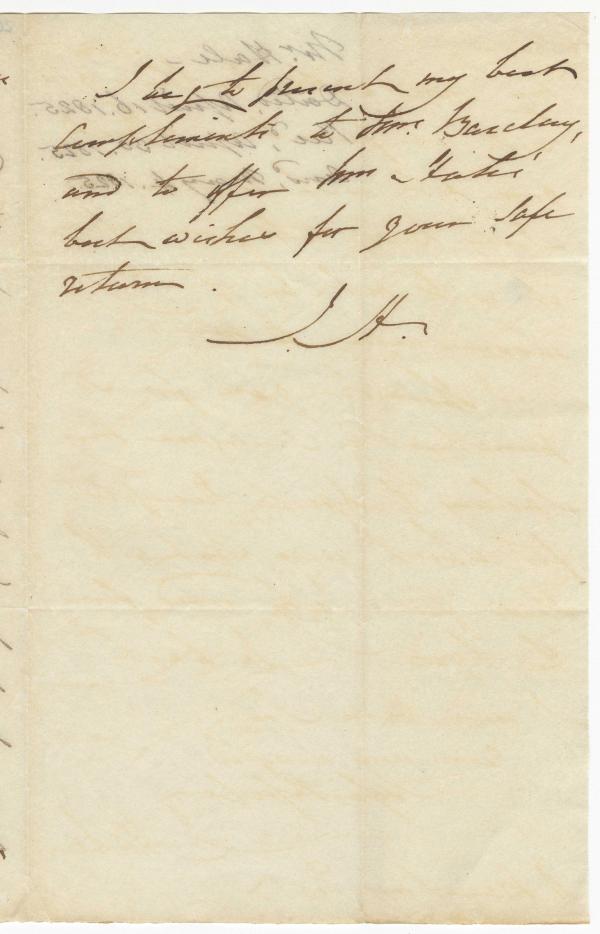 I beg to present my best
compliments to Mrs. Barclay,
and to offer Mrs
best wishes for your safe
return.
J. H.